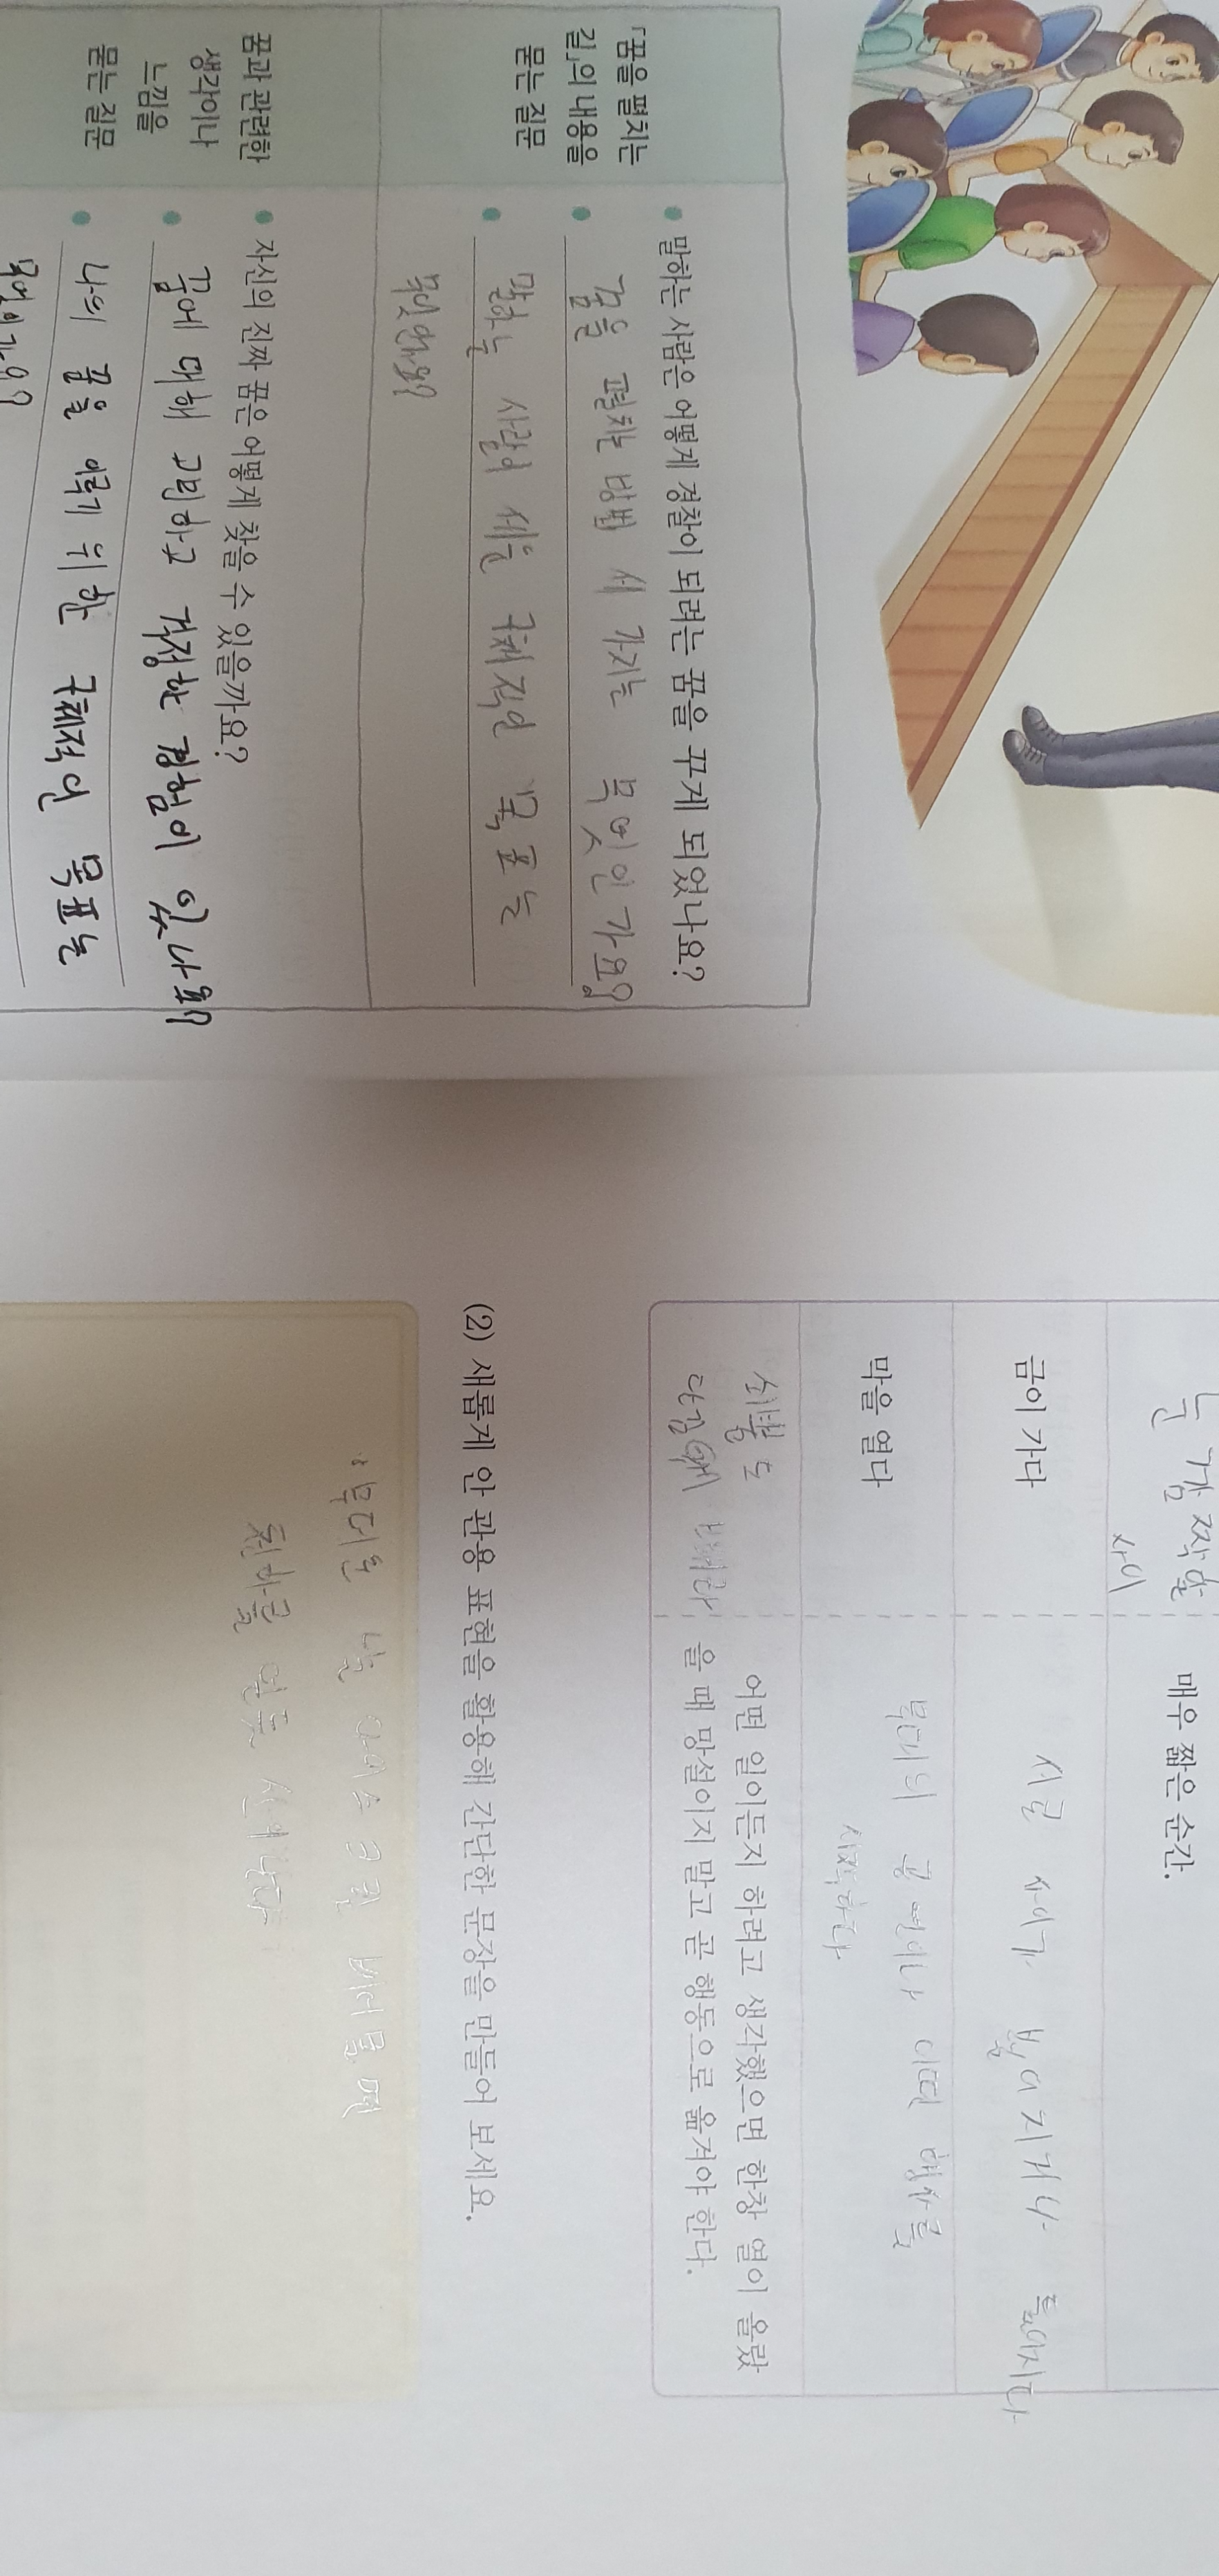 「꿈을 펼치는
길」의 내용을
묻는 질문
말하는 사람은 어떻게 경찰이 되려는 꿈을 꾸게 되었나요?
꿈을 펼치는 방법 세 가지는 무엇인가요?
말하는 사람이 세운 구체적인 목표는
무엇인가요?
꿈과 관련한
생각이나
느낌을
묻는 질문
자신의 진짜 꿈은 어떻게 찾을 수 있을까요?
꿈에 대해 고민하고 걱정한 경험이 있나요?
나의 꿈을 이루기 위한 구체적인 목표는
무엇인가요?
눈 깜짝할
사이
매우 짧은 순간.
금이 가다
서로 사이가 벌어지거나 틀어지다
막을 열다
무대의 공연이나 어떤 행사를
시작하다
쇠뿔도
단김에 빼라
어떤 일이든지 하려고 생각했으면 한창 열이 올랐
을 때 망설이지 말고 곧 행동으로 옮겨야 한다.
(2) 새롭게 안 관용 표현을 활용해 간단한 문장을 만들어 보세요.
무더운 날 아이스크림
천하를 얻은 듯 신이 난다